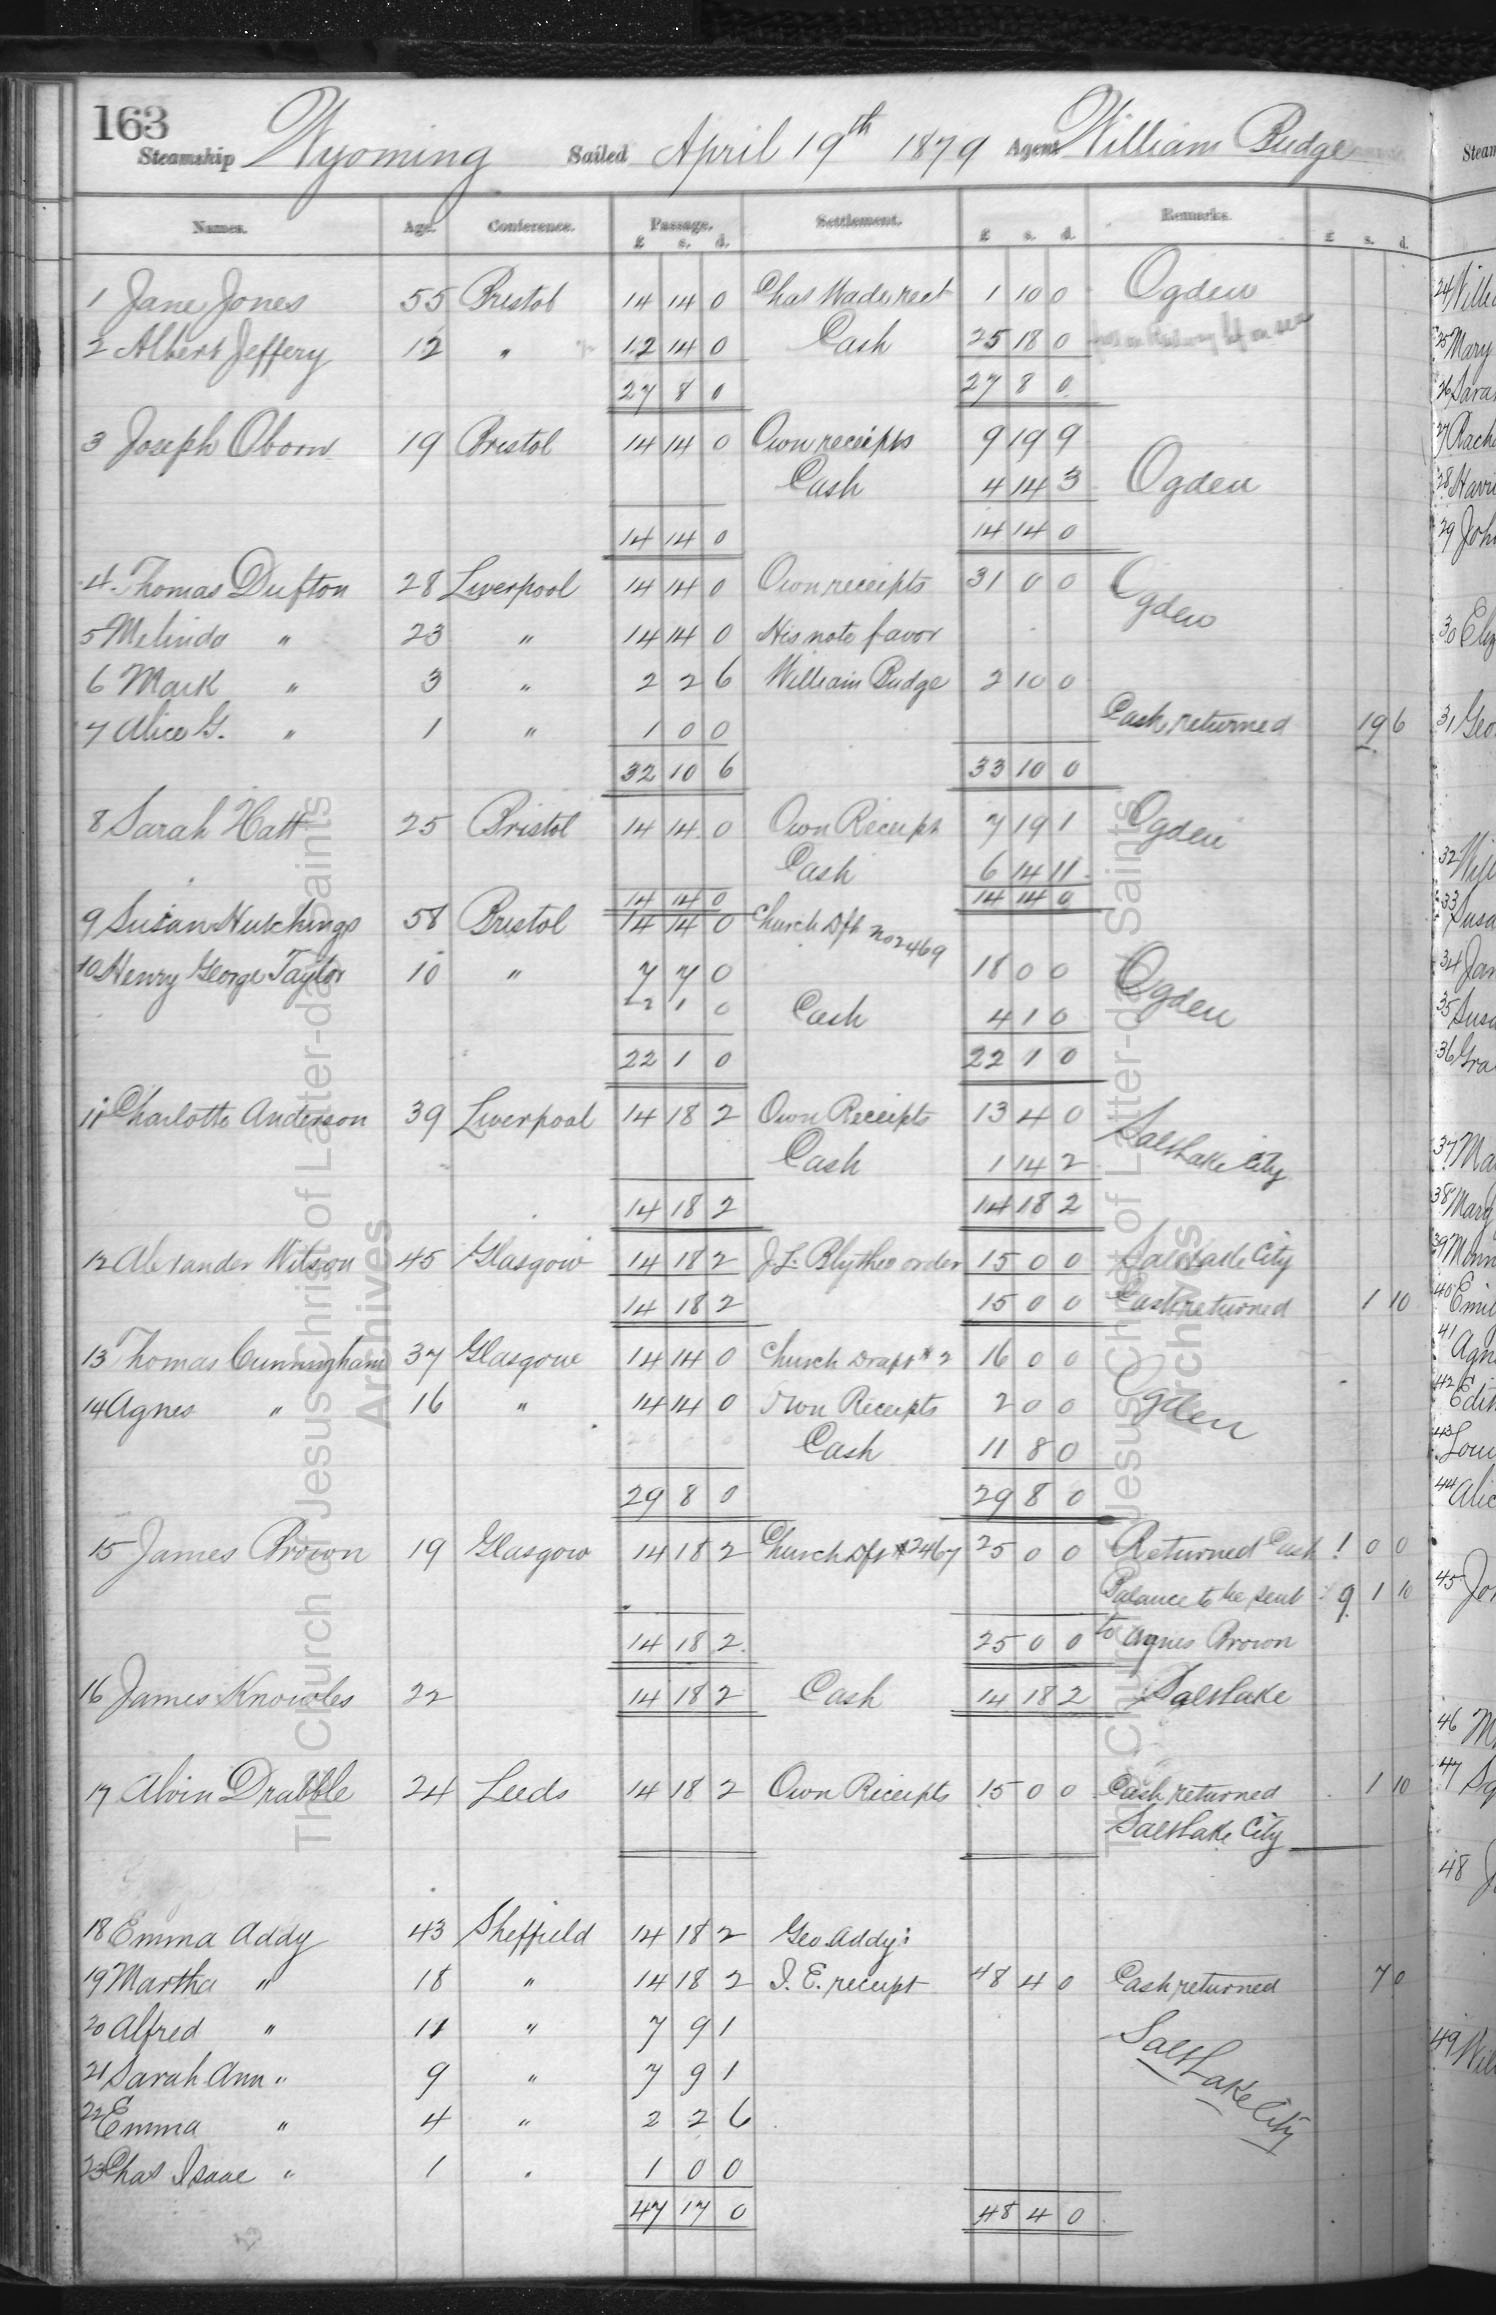 163
Steamship Wyoming Sailed April 19th 1879 Agent William Budge
Names. Age. Conference. Passage. Settlement. Remarks.
£ s. d. £ s. d. £ s. d.
1 Jane Jones 55 Bristol 14 14 0 Chas Wades rect 1 10 0 Ogden
2 Albert Jeffery 12 " 12 14 0 Cash 25 18 0
27 8 0 27 8 0
3 Joseph Oborn 19 Bristol 14 14 0 Own receipts 9 19 9
Cash 4 14 3 Ogden
14 14 0 14 14 0
4 Thomas Dufton 28 Liverpool 14 14 0 Own receipts 31 0 0 Ogden
5 Melinda " 23 " 14 14 0 His note favor
6 Mark " 3 " 2 2 6 William Budge 2 10 0
7 Alice G. " 1 " 1 0 0 Cash returned 19 6
32 10 6 33 10 0
8 Sarah Hatt 25 Bristol 14 14 0 Own Receipts 7 19 1 Ogden
Cash 6 14 11
14 14 0 14 14 0
9 Susan Hutchings 58 Bristol 14 14 0 Church Dft no 2469
10 Henry George Taylor 10 " 7 7 0 18 0 0 Ogden
22 1 0 Cash 4 1 0
22 1 0 22 1 0
11 Charlotte Anderson 39 Liverpool 14 18 2 Own Receipts 13 4 0 Salt Lake City
Cash 1 14 2
14 18 2 14 18 2
12 Alexander Wilson 45 Glasgow 14 18 2 J L. Blythes order 15 0 0 Salt Lake City
14 18 2 15 0 0 Cash returned 1 10
13 Thomas Cunningham 37 Glasgow 14 14 0 Church Draft # 2 16 0 0 Ogden
14 Agnes " 16 " 14 14 0 Own Receipts 2 0 0
Cash 11 8 0
29 8 0 29 8 0
15 James Brown 19 Glasgow 14 18 2 Church Dft #2467 25 0 0 Returned Cash 1 0 0
Balance to be sent 9 1 10
14 18 2 25 0 0 to Agnes Brown
16 James Knowles 22 14 18 2 Cash 14 18 2 Salt Lake
17 Alvin Drabble 24 Leeds 14 18 2 Own Receipts 15 0 0 Cash returned 1 10
Salt Lake City
18 Emma Addy 43 Sheffield 14 18 2 Geo. Addy's
19 Martha " 18 " 14 18 2 I. E. receipt 48 4 0 Cash returned 7 0
20 Alfred " 11 " 7 9 1 Salt Lake City
21 Sarah Ann " 9 " 7 9 1
22 Emma " 4 " 2 2 6
23 Chas Isaac " 1 " 1 0 0
47 17 0 48 4 0
The Church of Jesus Christ of Latter-day Saints
Archives
The Church of Jesus Christ of Latter-day Saints
Archives